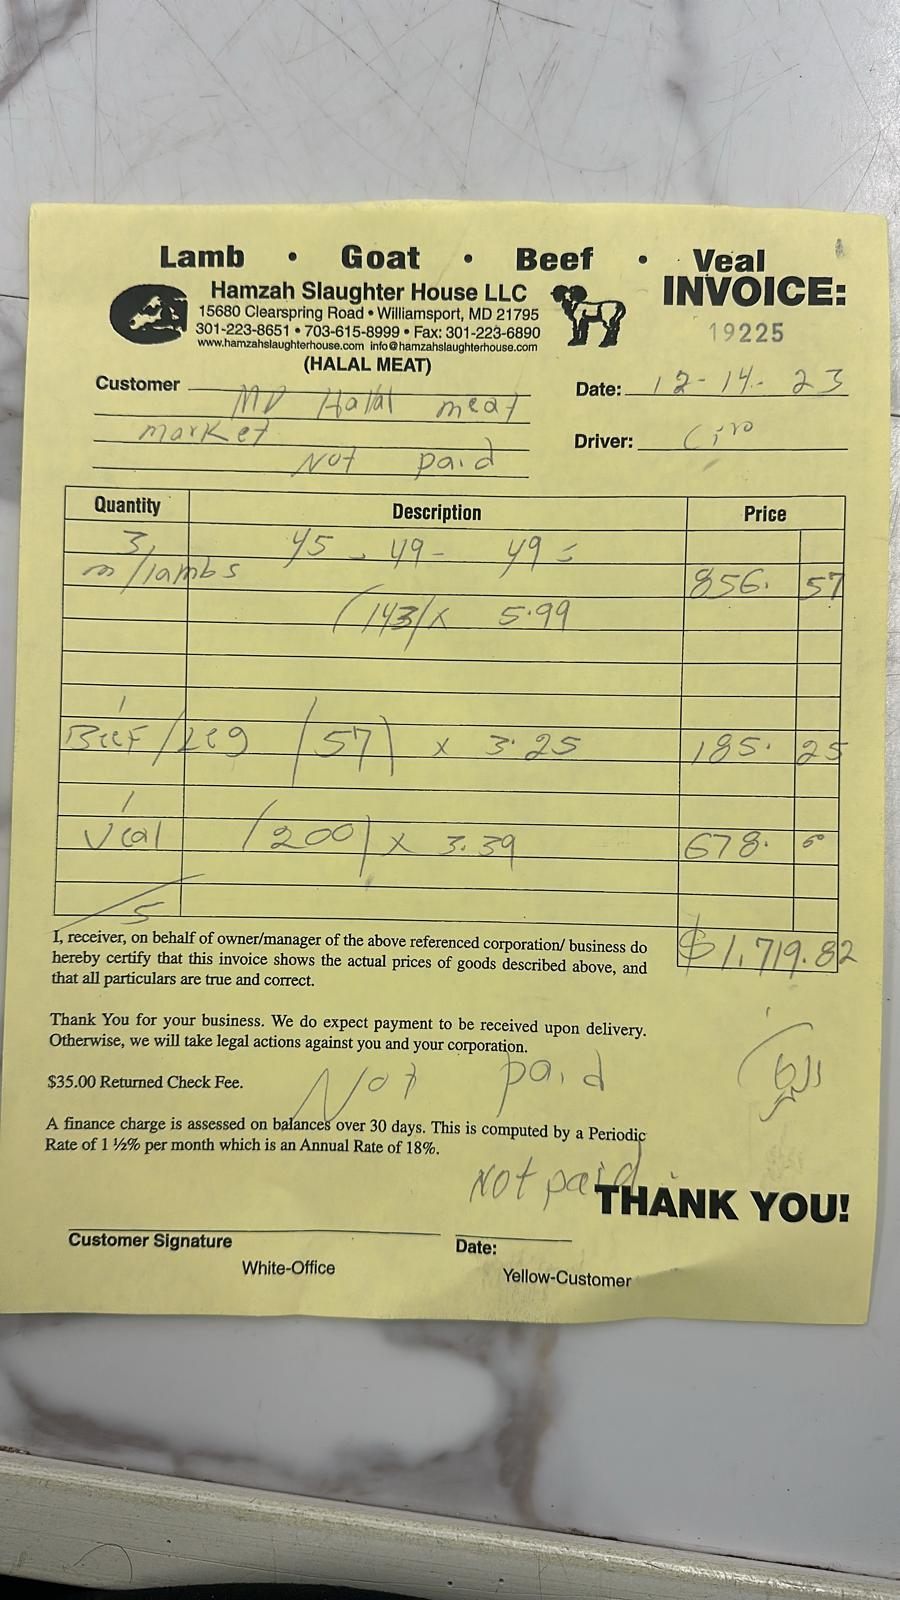 Lamb • Goat • Beef • Veal
INVOICE:
19225
Hamzah Slaughter House LLC
15680 Clearspring Road • Williamsport, MD 21795
301-223-8651 • 703-615-8999 • Fax: 301-223-6890
www.hamzahslaughterhouse.com info@hamzahslaughterhouse.com
(HALAL MEAT)
Customer MD Halal meat
market
Not paid
Date: 12-14-23
Driver: Ciro
Quantity Description Price
3 45 - 49 - 49 =
m/lambs 856. 57
(143) x 5.99
1
Beef/Leg (57) x 3.25 185. 25
1
Veal (200) x 3.39 678. 00
5
$1,719.82
I, receiver, on behalf of owner/manager of the above referenced corporation/ business do
hereby certify that this invoice shows the actual prices of goods described above, and
that all particulars are true and correct.
Thank You for your business. We do expect payment to be received upon delivery.
Otherwise, we will take legal actions against you and your corporation.
Not paid
$35.00 Returned Check Fee.
A finance charge is assessed on balances over 30 days. This is computed by a Periodic
Rate of 1 ½% per month which is an Annual Rate of 18%.
Not paid
THANK YOU!
Customer Signature
Date:
White-Office
Yellow-Customer